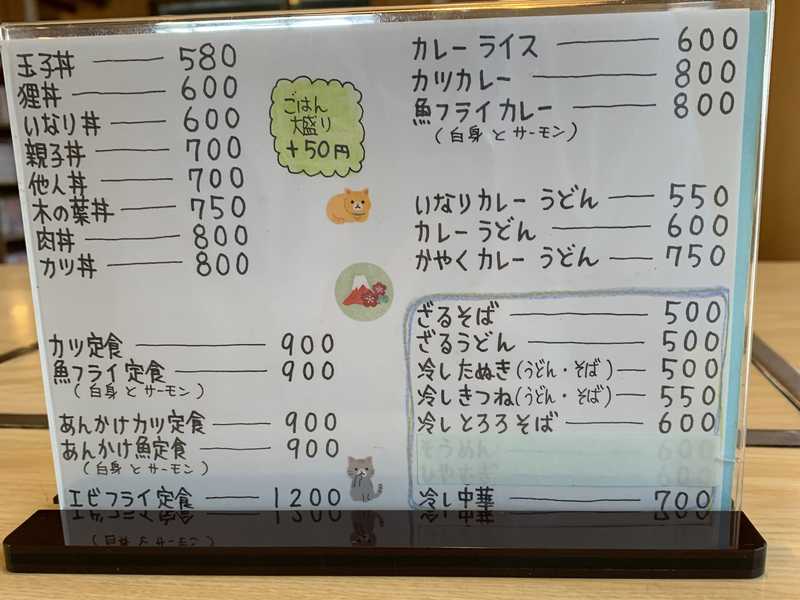 玉子丼 580
狸丼 600
いなり丼 600
親子丼 700
他人丼 700
木の葉丼 750
肉丼 800
カツ丼 800
ごはん
大盛り
+50円
カツ定食 900
魚フライ定食 900
(白身とサーモン)
あんかけカツ定食 900
あんかけ魚定食 900
(白身とサーモン)
エビフライ定食 1200
カレーライス 600
カツカレー 800
魚フライカレー 800
(白身とサーモン)
いなりカレーうどん 550
カレーうどん 600
かやくカレーうどん 750
ざるそば 500
ざるうどん 500
冷したぬき(うどん・そば) 500
冷しきつね(うどん・そば) 550
冷しとろろそば 600
そうめん 600
冷し中華 700